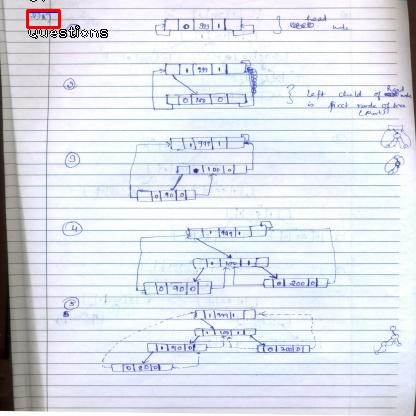 Questions
0 999 1
} head node
2
1 999 1
0 100 0
} Left child of head node
is first node of tree
(Root)
3
1 999 1
100 0
0 90 0
4
1 999 1
1 100 1
0 90 0
0 200 0
5
1 999 1
1 100 1
1 90 0
0 200 0
0 80 0